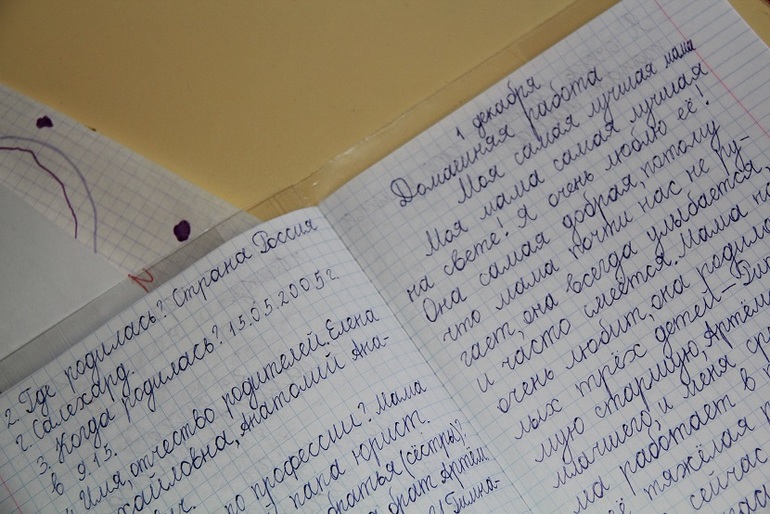 2. Где родилась? Страна Россия
г. Салехард.
3. Когда родилась? 15.05.2005г
в 9.15.
Имя, отчество родителей. Елена
хайловна, Анатолий Ана-
по профессии? Мама
папа юрист.
братья (сёстры)?
брат Артём
1 декабря
Домашняя работа
Моя самая лучшая мама
Моя мама самая лучшая
на свете! Я очень люблю её!
Она самая добрая, потому
что мама почти нас не ру-
гает, она всегда улыбается,
и часто смеётся. Мама на
очень любит, она родила
лых трёх детей-
мую старшую, Артём
младшего, и меня
ма работает в
её тяжёлая
сейчас